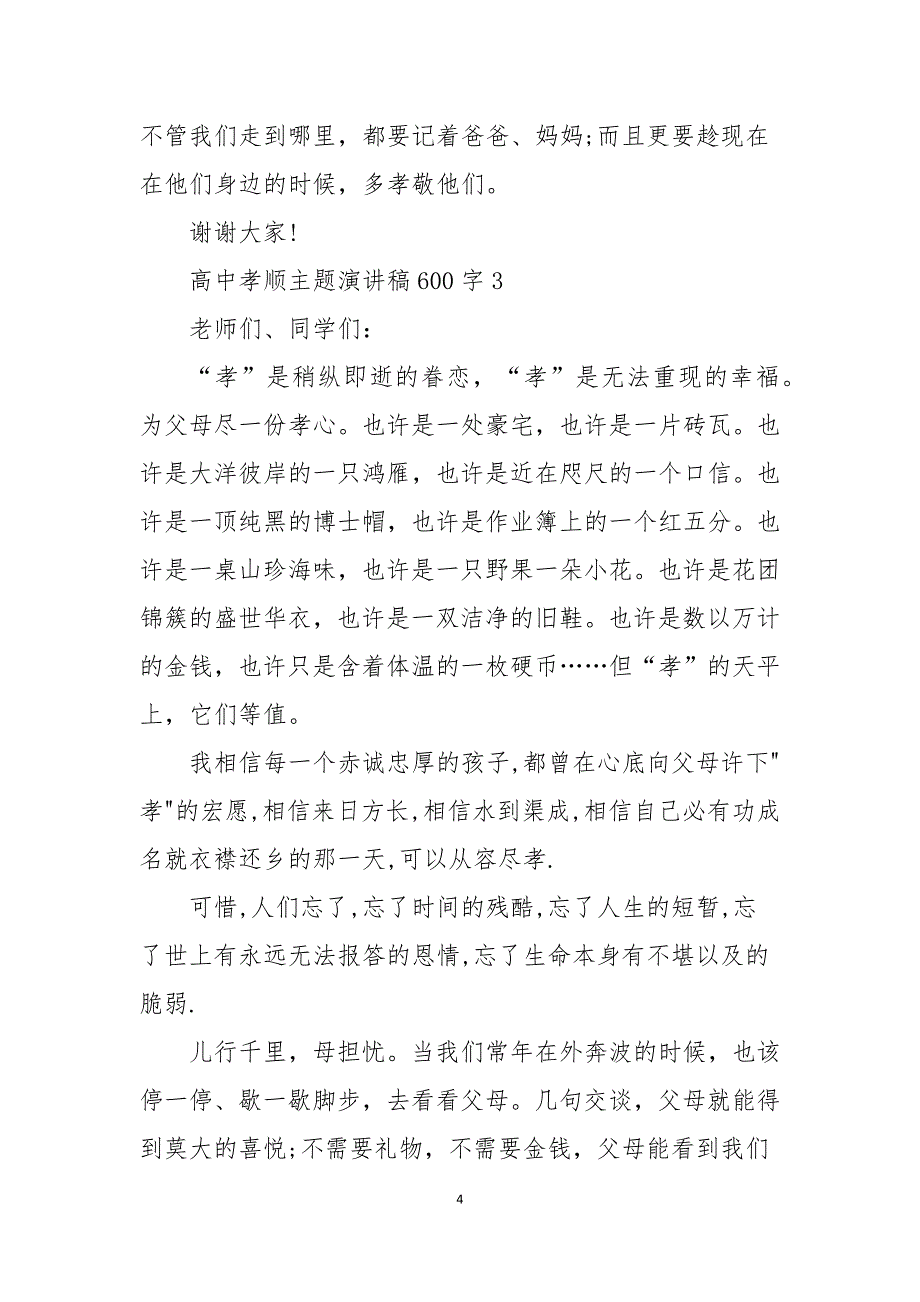 不管我们走到哪里，都要记着爸爸、妈妈;而且更要趁现在
在他们身边的时候，多孝敬他们。
谢谢大家!
高中孝顺主题演讲稿 600 字 3
老师们、同学们：
“孝”是稍纵即逝的眷恋，“孝”是无法重现的幸福。
为父母尽一份孝心。也许是一处豪宅，也许是一片砖瓦。也
许是大洋彼岸的一只鸿雁，也许是近在咫尺的一个口信。也
许是一顶纯黑的博士帽，也许是作业簿上的一个红五分。也
许是一桌山珍海味，也许是一只野果一朵小花。也许是花团
锦簇的盛世华衣，也许是一双洁净的旧鞋。也许是数以万计
的金钱，也许只是含着体温的一枚硬币……但“孝”的天平
上，它们等值。
我相信每一个赤诚忠厚的孩子,都曾在心底向父母许下"
孝"的宏愿,相信来日方长,相信水到渠成,相信自己必有功成
名就衣襟还乡的那一天,可以从容尽孝.
可惜,人们忘了,忘了时间的残酷,忘了人生的短暂,忘
了世上有永远无法报答的恩情,忘了生命本身有不堪以及的
脆弱.
儿行千里，母担忧。当我们常年在外奔波的时候，也该
停一停、歇一歇脚步，去看看父母。几句交谈，父母就能得
到莫大的喜悦;不需要礼物，不需要金钱，父母能看到我们
4